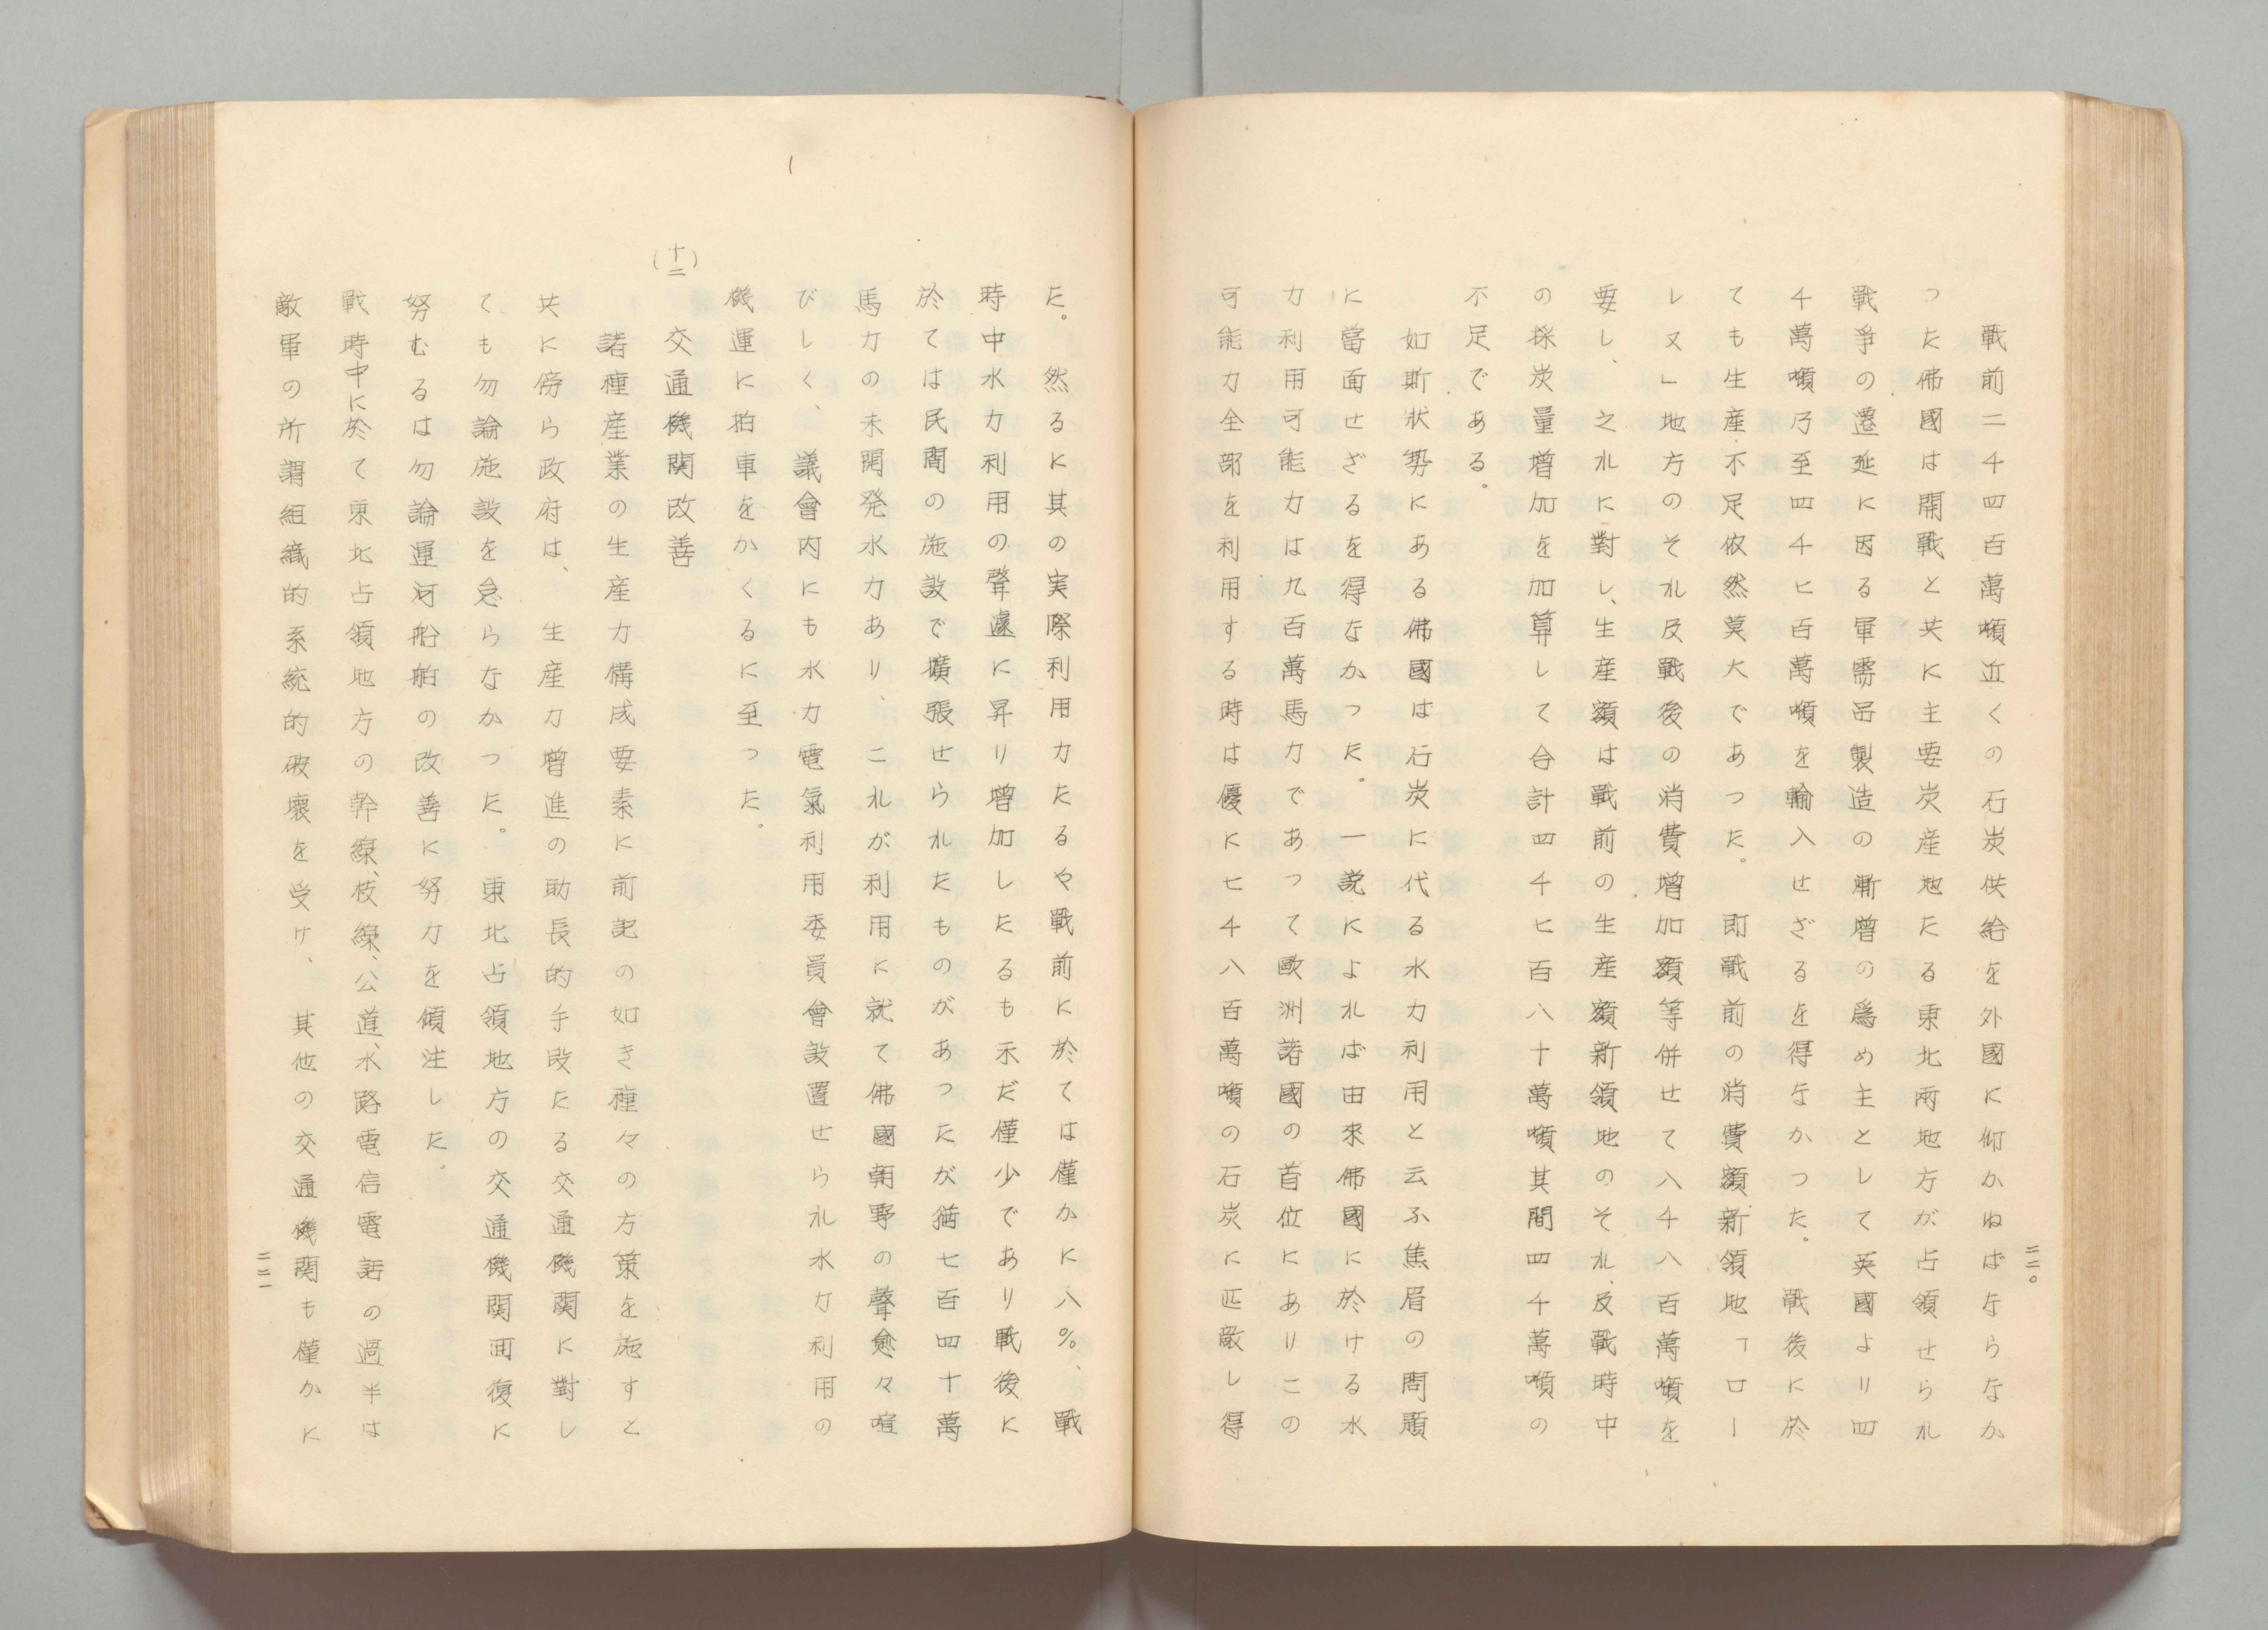 戰前二千四百萬噸近くの石炭供給を外國に仰かねばならなか
つた佛國は開戰と共に主要炭産地たる東北兩地方が占領せられ
戰爭の遷延に因る軍需品製造の漸増の爲め主として英國より四
千萬噸乃至四千七百萬噸を輸入せざるを得なかつた。　戰後に於
ても生産不足依然莫大であつた。　即戰前の消費額新領地「ロー
レ又」地方のそれ及戰後の消費増加額等併せて八千八百萬噸を
要し、之れに對し、生産額は戰前の生産額新領地のそれ及戰時中
の採炭量増加を加算して合計四千七百八十萬噸其間四千萬噸の
不足である。
如斯狀勢にある佛國は石炭に代る水力利用と云ふ焦眉の問題
に當面せざるを得なかつた。　一説によれば由來佛國に於ける水
力利用可能力は九百萬馬力であつて歐洲諸國の首位にありこの
可能力全部を利用する時は優に七千八百萬噸の石炭に匹敵し得
二二〇
た。　然るに其の実際利用力たるや戰前に於ては僅かに八％、戰
時中水力利用の聲遽に昇り増加したるも未だ僅少であり戰後に
於ては民間の施設で擴張せられたものがあつたが猶七百四十萬
馬力の未開発水力あり、これが利用に就て佛國朝野の聲愈々喧
びしく、議會内にも水力電氣利用委員會設置せられ水力利用の
機運に拍車をかくるに至つた。
(十二)　交通機関改善
諸種産業の生産力構成要素に前記の如き種々の方策を施すと
共に傍ら政府は、生産力増進の助長的手段たる交通機関に對し
ても勿論施設を急らなかつた。　東北占領地方の交通機関囬復に
努むるは勿論運河船舶の改善に努力を傾注した。
戰時中に於て東北占領地方の幹線、枝線、公道、水路電信電話の過半は
敵軍の所謂組織的系統的破壞を受け、　其他の交通機関も僅かに
二二一